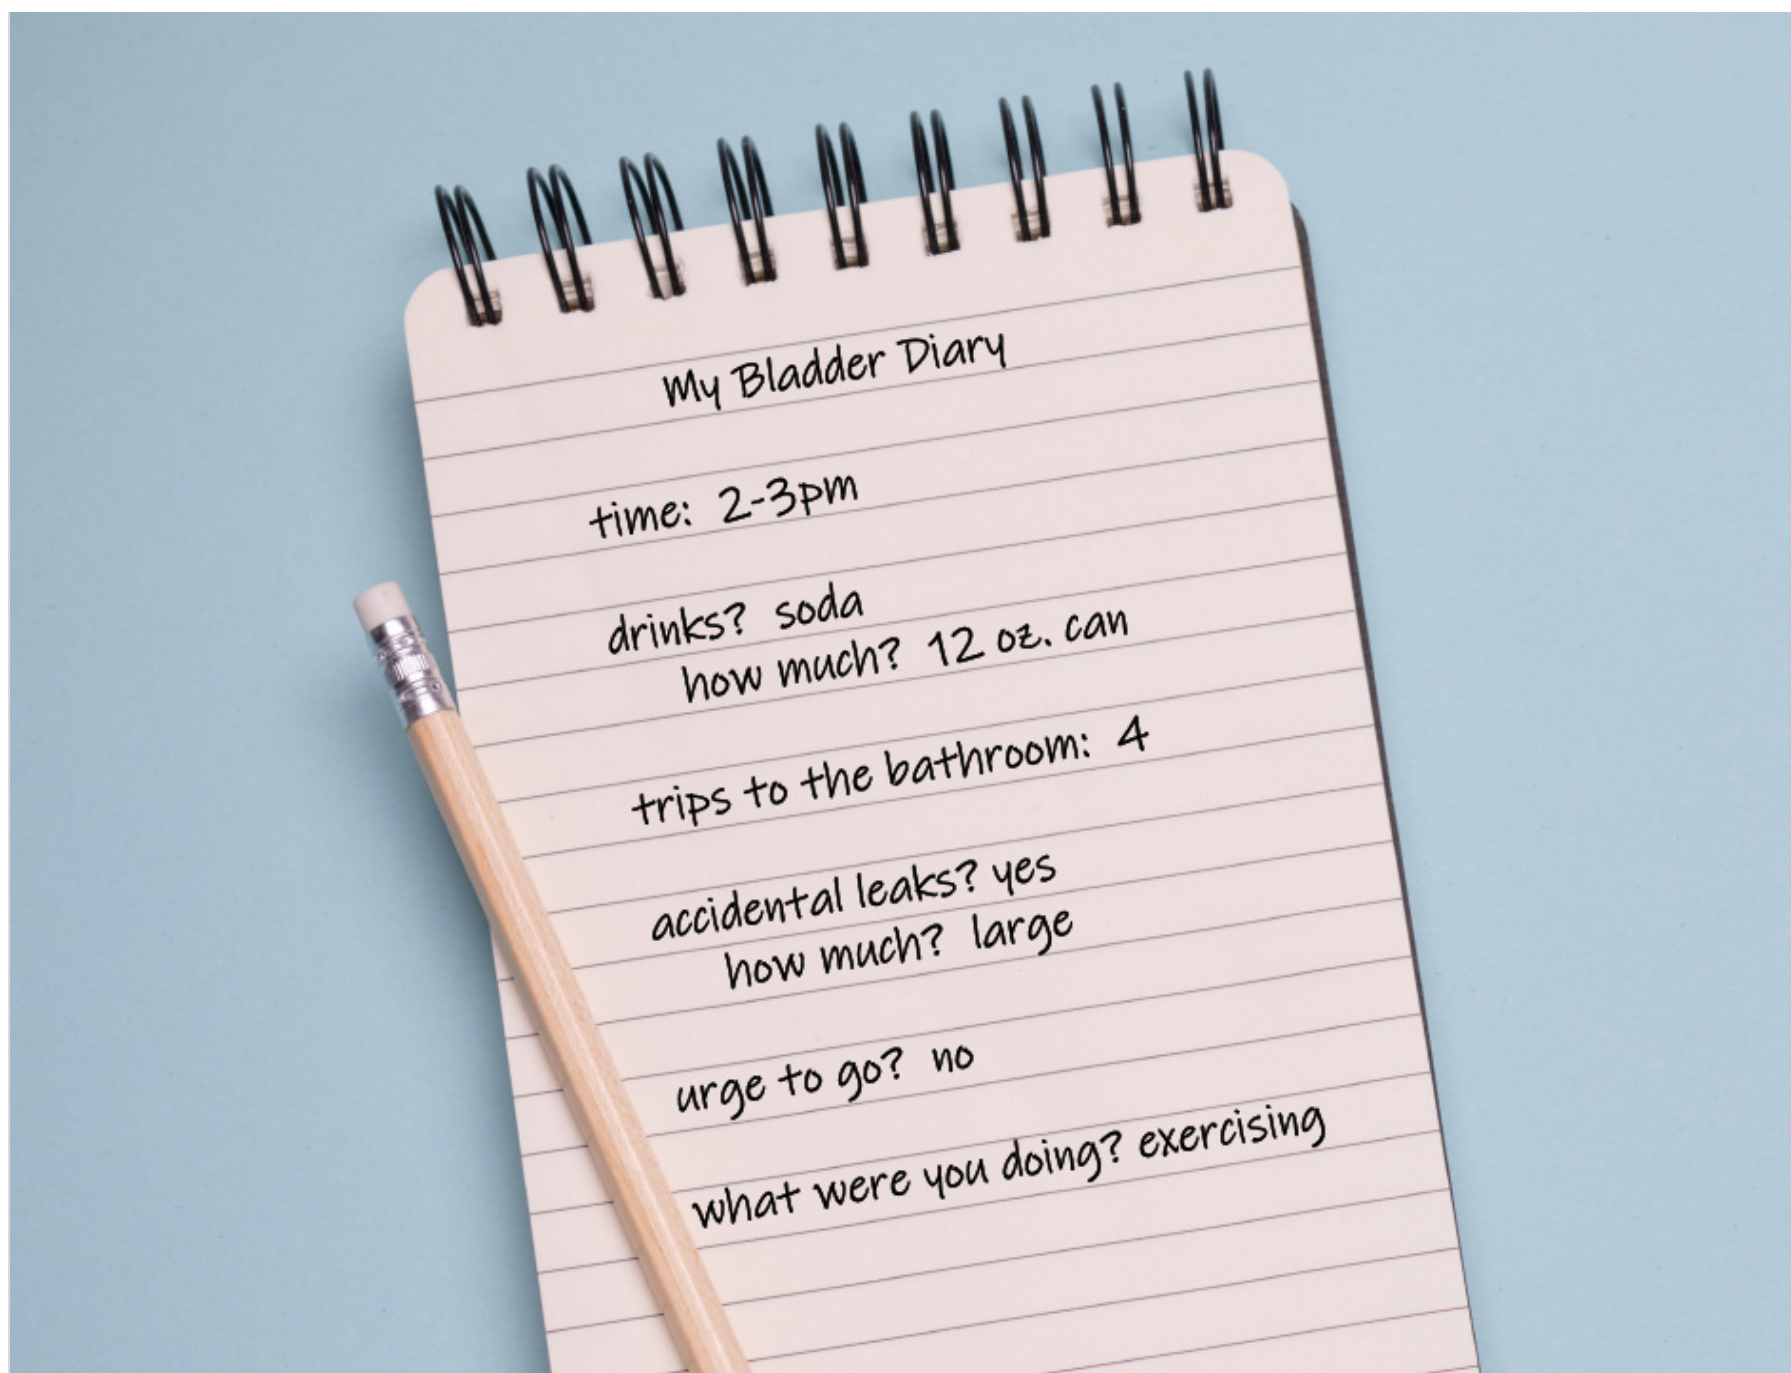 My Bladder Diary
time: 2-3pm
drinks? soda
how much? 12 oz. can
trips to the bathroom: 4
accidental leaks? yes
how much? large
urge to go? no
what were you doing? exercising